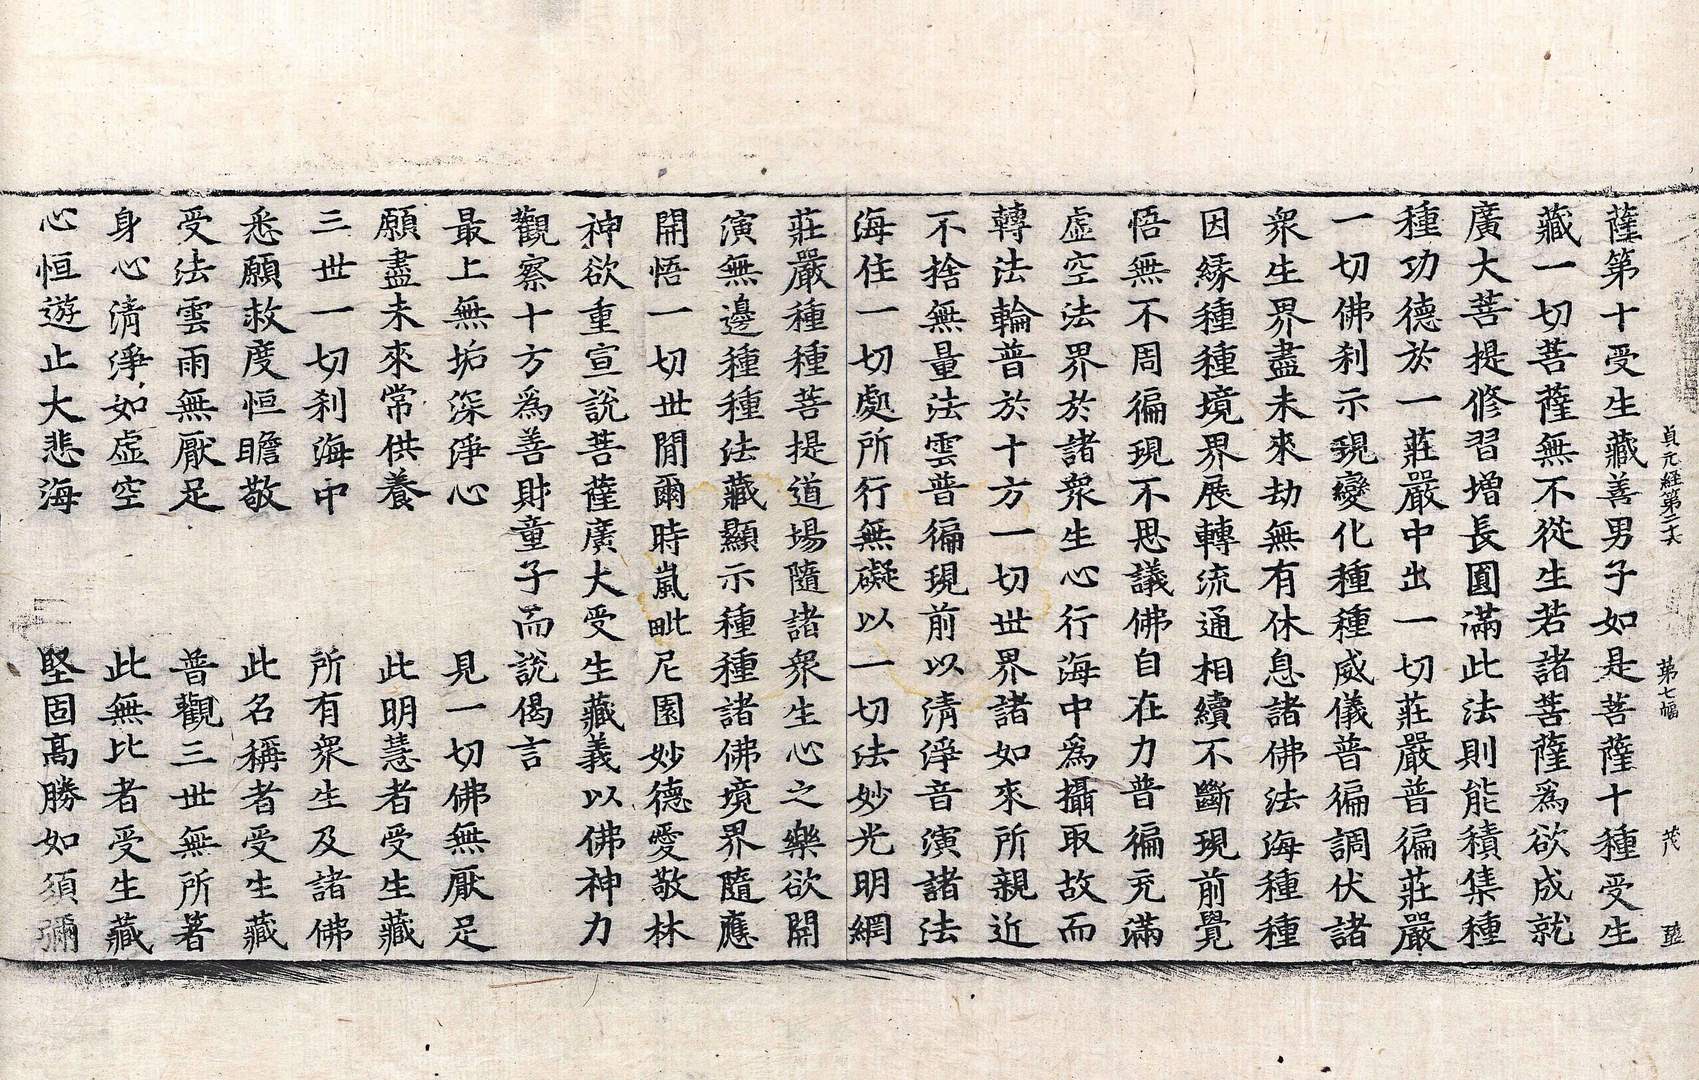 貞元経第二十六 第七幅 茂
薩第十受生藏善男子如是菩薩十種受生
藏一切菩薩無不從生若諸菩薩為欲成就
廣大菩提修習增長圓滿此法則能積集種
種功德於一莊嚴中出一切莊嚴普徧莊嚴
一切佛刹示現變化種種威儀普徧調伏諸
衆生界盡未來劫無有休息諸佛法海種種
因緣種種境界展轉流通相續不斷現前覺
悟無不周徧現不思議佛自在力普徧充滿
虛空法界於諸衆生心行海中為攝取故而
轉法輪普於十方一切世界諸如來所親近
不捨無量法雲普徧現前以清淨音演諸法
海住一切處所行無礙以一切法妙光明網
莊嚴種種菩提道場隨諸衆生心之樂欲開
演無邊種種法藏顯示種種諸佛境界隨應
開悟一切世閒爾時嵐毗尼園妙德愛敬林
神欲重宣說菩薩廣大受生藏義以佛神力
觀察十方為善財童子而說偈言
最上無垢深淨心 見一切佛無厭足
願盡未來常供養 此明慧者受生藏
三世一切刹海中 所有衆生及諸佛
悉願救度恒瞻敬 此名稱者受生藏
受法雲雨無厭足 普觀三世無所著
身心清淨如虛空 此無比者受生藏
心恒遊止大悲海 堅固高勝如須彌